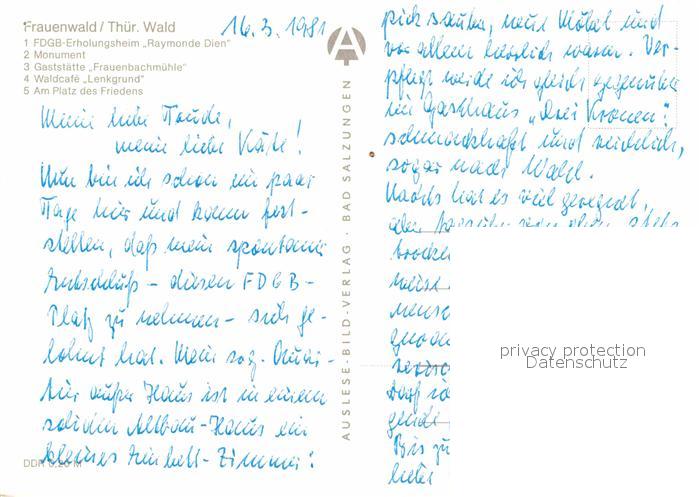 Frauenwald / Thür. Wald
1 FDGB-Erholungsheim „Raymonde Dien"
2 Monument
3 Gaststätte „Frauenbachmühle"
4 Waldcafé „Lenkgrund"
5 Am Platz des Friedens
16.3.1981
Meine liebe Traude,
meine liebe Käte!
Nun bin ich schon ein paar
Tage hier und kann fest-
stellen, daß mein spontaner
Entschluß – diesen FDGB-
Platz zu nehmen – sich ge-
lohnt hat. Mein sog. Quar-
tier außer Haus ist in einem
soliden Altbau-Haus ein
kleines Einbett-Zimmer:
DDR 0,20 M
AUSLESE-BILD-VERLAG · BAD SALZUNGEN
pick sauber, neue Möbel und
vor allem herrlich warm. Ver-
pflegt werde ich gleich gegenüber
im Gasthaus „Drei Kronen":
schmackhaft und reichlich,
sogar nach Wahl.
Nachts hat es viel geregnet,
aber stets
trocken
meist
mensc
darf ich
Bis zu
privacy protection
Datenschutz